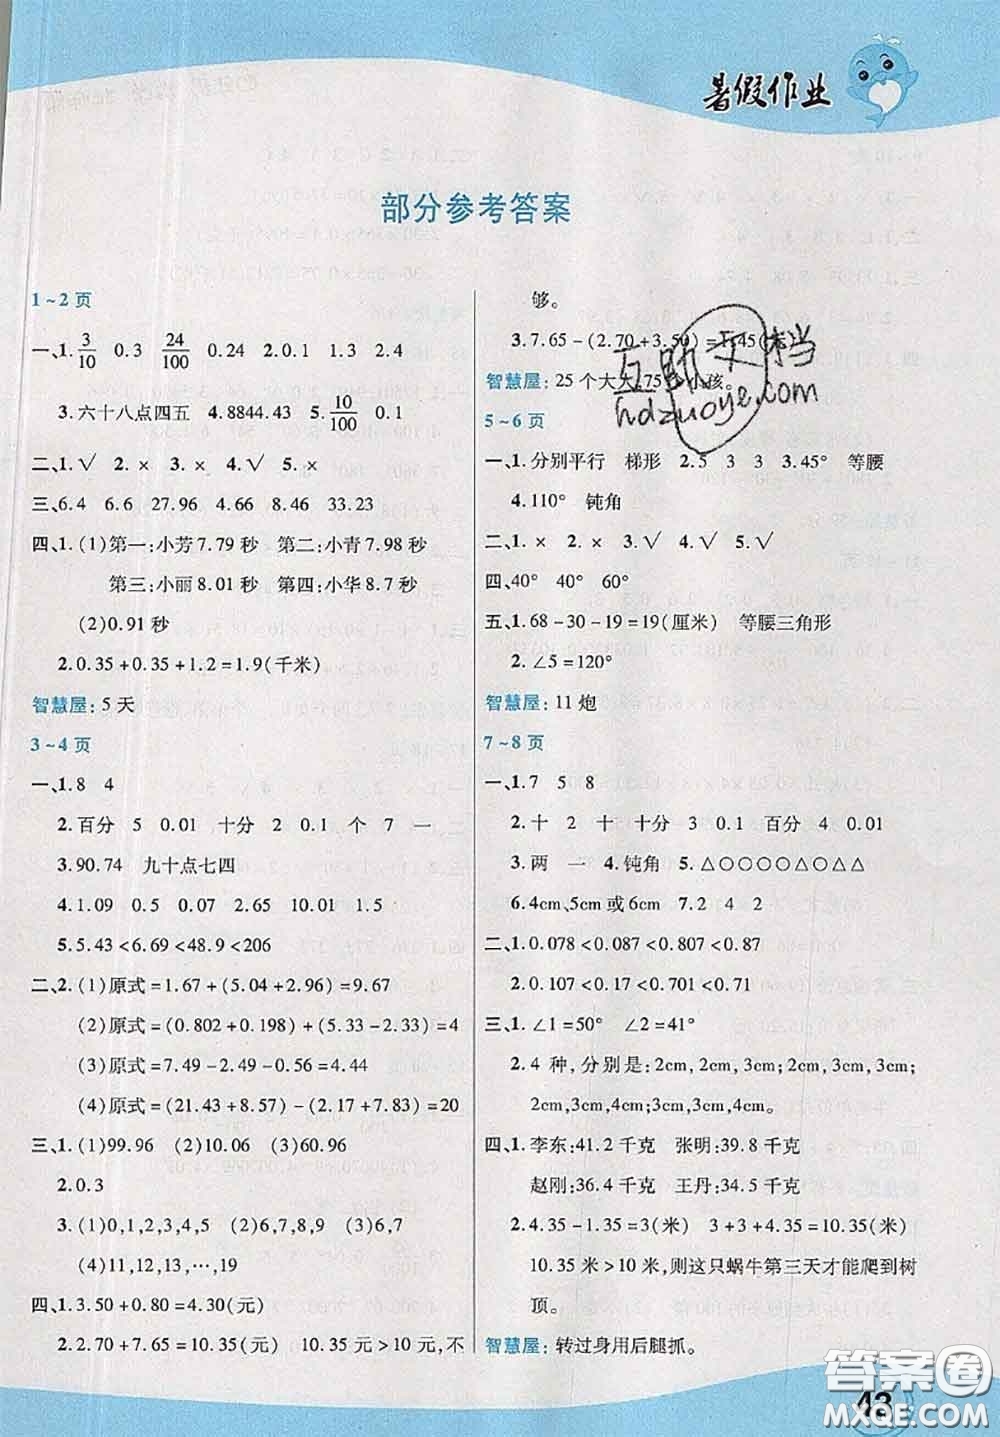 暑假作业
部分参考答案
1~2页
一、1. 3/10 0.3 24/100 0.24 2.0.1 1.3 2.4
3.六十八点四五 4.8844.43 5. 10/100 0.1
二、1.√ 2.× 3.× 4.√ 5.×
三、6.4 6.6 27.96 4.66 8.46 33.23
四、1.(1)第一:小芳7.79秒 第二:小青7.98秒
第三:小丽8.01秒 第四:小华8.7秒
(2)0.91秒
2.0.35+0.35+1.2=1.9(千米)
智慧屋:5天
3~4页
一、1.8 4
2.百分 5 0.01 十分 2 0.1 个 7 一
3.90.74 九十点七四
4.1.09 0.5 0.07 2.65 10.01 1.5
5.5.43<6.69<48.9<206
二、2.(1)原式=1.67+(5.04+2.96)=9.67
(2)原式=(0.802+0.198)+(5.33-2.33)=4
(3)原式=7.49-2.49-0.56=4.44
(4)原式=(21.43+8.57)-(2.17+7.83)=20
三、1.(1)99.96 (2)10.06 (3)60.96
2.0.3
3.(1)0,1,2,3,4,5 (2)6,7,8,9 (3)6,7
(4)11,12,13,…,19
四、1.3.50+0.80=4.30(元)
2.2.70+7.65=10.35(元) 10.35元>10元,不
够。
3.7.65-(2.70+3.50)=1.45(元)
智慧屋:25个大人,75个小孩。
5~6页
一、1.分别平行 梯形 2.5 3 3 3.45° 等腰
4.110° 钝角
二、1.× 2.× 3.√ 4.√ 5.√
四、40° 40° 60°
五、1.68-30-19=19(厘米) 等腰三角形
2.∠5=120°
智慧屋:11炮
7~8页
一、1.7 5 8
2.十 2 十 十分 3 0.1 百分 4 0.01
3.两 一 4.钝角 5.△○○○○△○△△
6.4cm、5cm或6cm 7.2 4 2
二、1.0.078<0.087<0.807<0.87
2.0.107<0.17<0.701<0.71
三、1.∠1=50° ∠2=41°
2.4种,分别是:2cm,2cm,3cm;2cm,3cm,3cm;
2cm,3cm,4cm;3cm,3cm,4cm。
四、1.李东:41.2千克 张明:39.8千克
赵刚:35.6千克 王丹:34.5千克
2.4.35-1.35=3(米) 3+3+4.35=10.35(米)
10.35米>10米,则这只蜗牛第三天才能爬到树
顶。
智慧屋:转过身用后腿抓。
互助文档
hdzuoye.com
43
答案圈
MXQE.COM